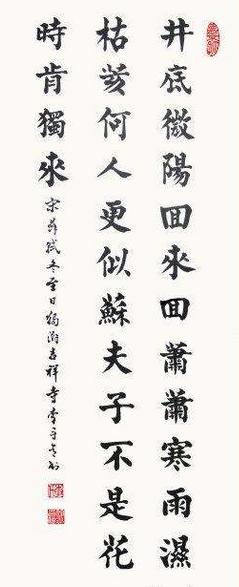 井底微陽回來回蕭蕭寒雨濕
枯荄何人更似蘇夫子不是花
時肯獨來
宋蘇軾冬至日獨游吉祥寺李守